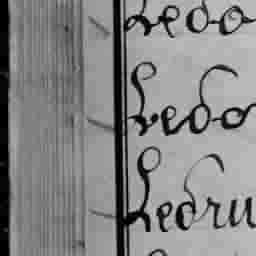 Ledo
Ledo
Ledru